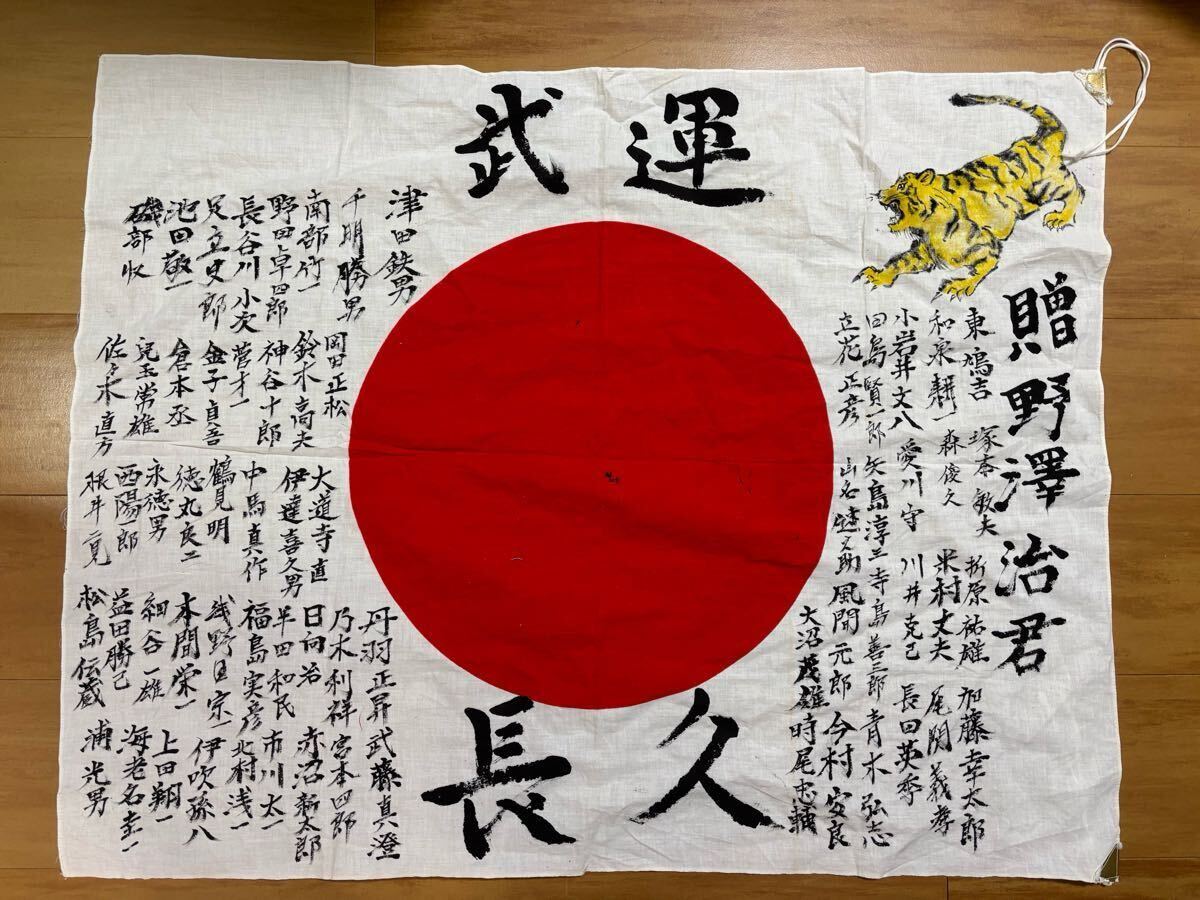 武運
長久
贈野澤治君
東鳩吉
塚本敏夫
折原祐雄
加藤幸太郎
和泉耕
森俊久
米村丈夫
尾関義孝
小岩井文八
愛川守
川井克己
長田英季
田島賢一郎
矢島淳三
寺島善三郎
青木弘志
立花正彦
山名健之助
風間元郎
今村安良
大沼茂雄
時尾忠輔
津田鉄男
千明勝男
岡田正松
大道寺直
丹羽正昇
武藤真澄
南部竹一
鈴木高夫
伊達喜久男
乃木利祥
宮本四郎
野田卓四郎
神谷十郎
中馬真作
日向治
赤沼新太郎
長谷川小次
菅才一
鶴見明
早田和民
市川太一
足立史郎
金子貞吾
徳丸良二
福島実彦
北村浅一
池田敬一
倉本丞
永徳男
浅野目宗一
伊吹孫八
磯部収
児玉常雄
西陽一郎
本間栄一
上田翔一
佐々木直方
細谷一雄
海老名圭一
益田勝己
浦光男
松島伝蔵